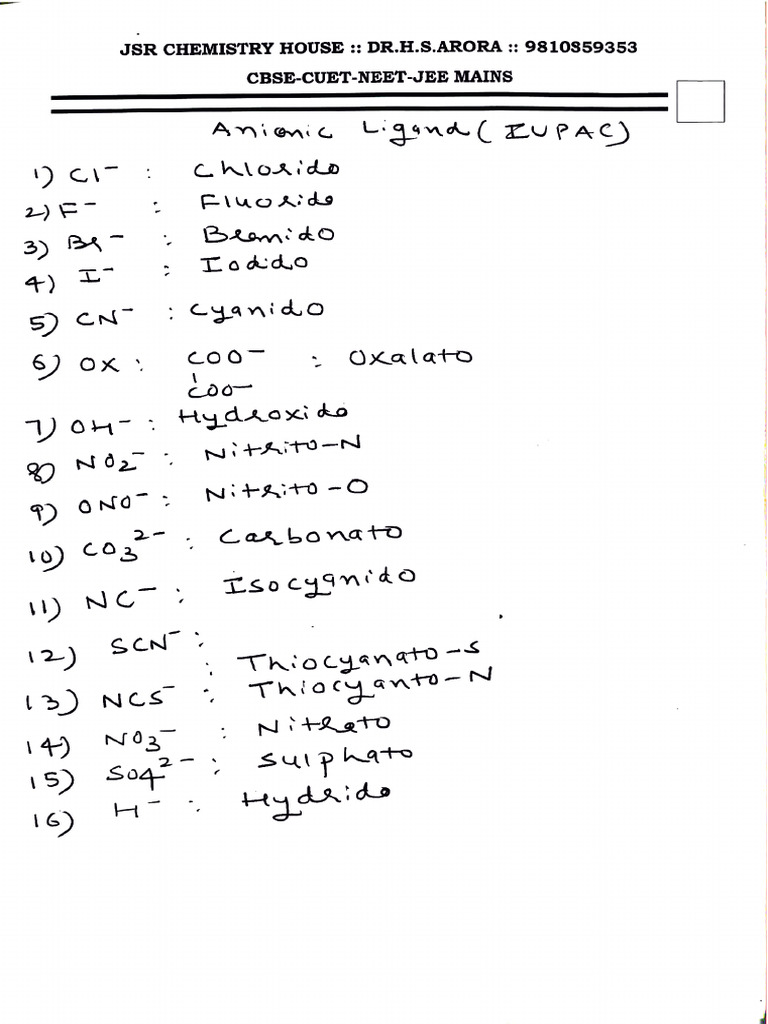 JSR CHEMISTRY HOUSE :: DR.H.S.ARORA :: 9810859353
CBSE-CUET-NEET-JEE MAINS
Anionic Ligand (IUPAC)
1) Cl⁻ : Chlorido
2) F⁻ : Fluorido
3) Br⁻ : Bromido
4) I⁻ : Iodido
5) CN⁻ : Cyanido
6) OX : COO⁻ : Oxalato
COO⁻
7) OH⁻ : Hydroxido
8) NO₂⁻ : Nitrito-N
9) ONO⁻ : Nitrito-O
10) CO₃²⁻ : Carbonato
11) NC⁻ : Isocyanido
12) SCN⁻ :
: Thiocyanato-S
13) NCS⁻ : Thiocyanto-N
14) NO₃⁻ : Nitrato
15) SO₄²⁻ : Sulphato
16) H⁻ : Hydrido